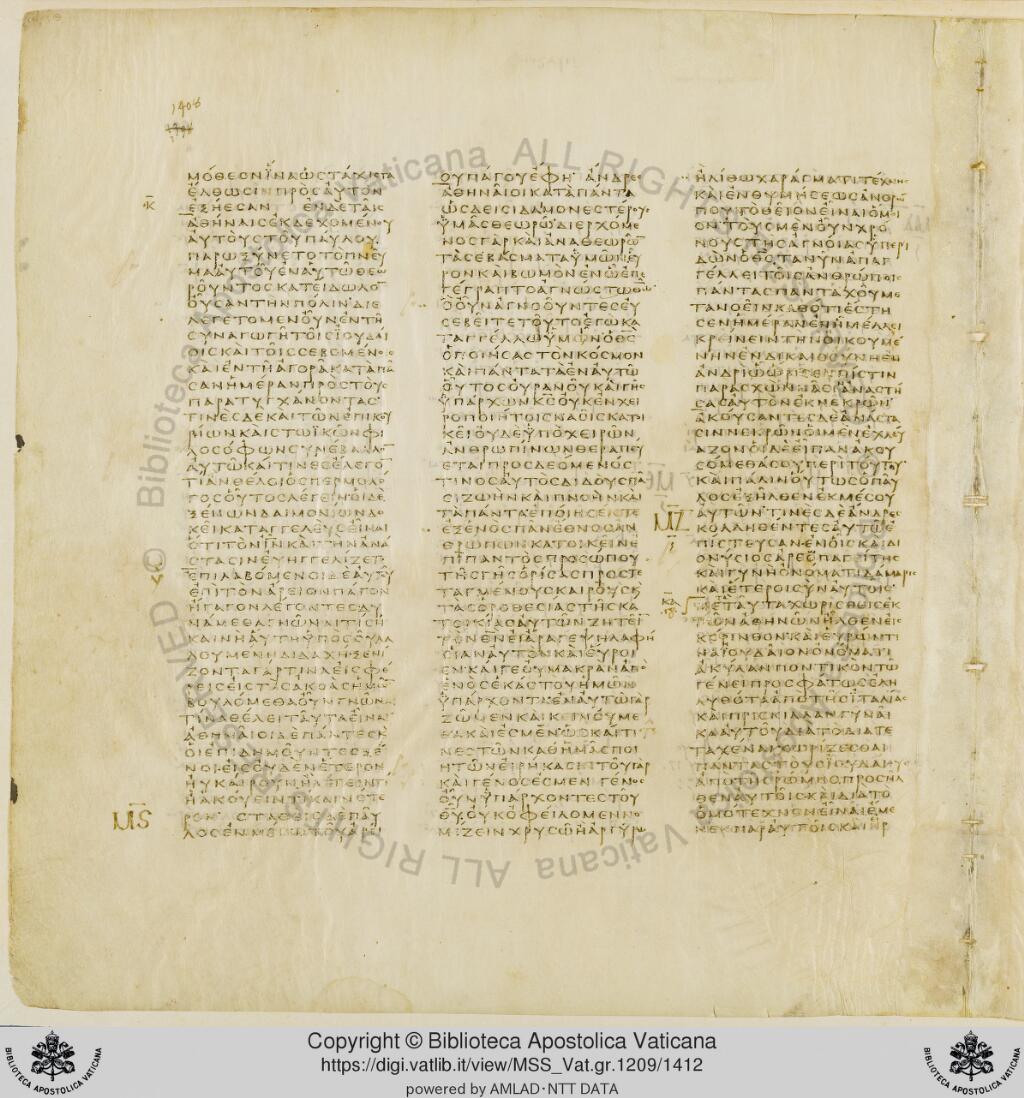 1408
ΜΟΘΕΟΝΙΝΑΩϹΤΑΧΙϹΤΑ
ΕΛΘΩϹΙΝΠΡΟϹΑΥΤΟΝ
Κ
ΕΞΗΕϹΑΝ ΕΝΔΕΤΑΙϹ
ΑΘΗΝΑΙϹΕΚΔΕΧΟΜΕΝΟΥ
ΑΥΤΟΥϹΤΟΥΠΑΥΛΟΥ
ΠΑΡΩΞΥΝΕΤΟΤΟΠΝΕΥ
ΜΑΑΥΤΟΥΕΝΑΥΤΩΘΕΩ
ΡΟΥΝΤΟϹΚΑΤΕΙΔΩΛΟ
ΟΥϹΑΝΤΗΝΠΟΛΙΝΔΙΕ
ΛΕΓΕΤΟΜΕΝΟΥΝΕΝΤΗ
ϹΥΝΑΓΩΓΗΤΟΙϹΙΟΥΔΑΙ
ΟΙϹΚΑΙΤΟΙϹϹΕΒΟΜΕΝΟΙϹ
ΚΑΙΕΝΤΗΑΓΟΡΑΚΑΤΑΠΑ
ϹΑΝΗΜΕΡΑΝΠΡΟϹΤΟΥϹ
ΠΑΡΑΤΥΓΧΑΝΟΝΤΑϹ
ΤΙΝΕϹΔΕΚΑΙΤΩΝΕΠΙΚΟΥ
ΡΙΩΝΚΑΙϹΤΩΙΚΩΝΦΙ
ΛΟϹΟΦΩΝϹΥΝΕΒΑΛΛΟ
ΑΥΤΩΚΑΙΤΙΝΕϹΕΛΕΓΟ
ΤΙΑΝΘΕΛΟΙΟϹΠΕΡΜΟΛΟ
ΓΟϹΟΥΤΟϹΛΕΓΕΙΝΟΙΔΕ
ΞΕΝΩΝΔΑΙΜΟΝΙΩΝΔΟ
ΚΕΙΚΑΤΑΓΓΕΛΕΥϹΕΙΝΑΙ
ΟΤΙΤΟΝΙΝΚΑΙΤΗΝΑΝΑ
ϹΤΑϹΙΝΕΥΗΓΓΕΛΙΖΕΤΟ
ΕΠΙΛΑΒΟΜΕΝΟΙΔΕΑΥΤΟΥ
ΕΠΙΤΟΝΑΡΕΙΟΝΠΑΓΟΝ
ΗΓΑΓΟΝΛΕΓΟΝΤΕϹΔΥ
ΝΑΜΕΘΑΓΝΩΝΑΙΤΙϹΗ
ΚΑΙΝΗΑΥΤΗΥΠΟϹΟΥΛΑ
ΛΟΥΜΕΝΗΔΙΔΑΧΗΞΕΝΙ
ΖΟΝΤΑΓΑΡΤΙΝΑΕΙϹΦΕ
ΡΕΙϹΕΙϹΤΑϹΑΚΟΑϹΗΜΩ
ΒΟΥΛΟΜΕΘΑΟΥΝΓΝΩΝΑΙ
ΤΙΝΑΘΕΛΕΙΤΑΥΤΑΕΙΝΑΙ
ΑΘΗΝΑΙΟΙΔΕΠΑΝΤΕϹΚ
ΟΙΕΠΙΔΗΜΟΥΝΤΕϹΞΕ
ΝΟΙΕΙϹΟΥΔΕΝΕΤΕΡΟΝ
ΗΥΚΑΙΡΟΥΝΗΛΕΓΕΙΝΤΙ
ΗΑΚΟΥΕΙΝΤΙΚΑΙΝΟΤΕ
ΡΟΝ ϹΤΑΘΕΙϹΔΕΠΑΥ
ΜϚ
ΛΟϹΕΝΜΕϹΩΤΟΥΑΡΕΙ
ΟΥΠΑΓΟΥΕΦΗ ΑΝΔΡΕϹ
ΑΘΗΝΑΙΟΙΚΑΤΑΠΑΝΤΑ
ΩϹΔΕΙϹΙΔΑΙΜΟΝΕϹΤΕΡΟΥϹ
ΥΜΑϹΘΕΩΡΩΔΙΕΡΧΟΜΕ
ΝΟϹΓΑΡΚΑΙΑΝΑΘΕΩΡΩ
ΤΑϹΕΒΑϹΜΑΤΑΥΜΩΝΕΥ
ΡΟΝΚΑΙΒΩΜΟΝΕΝΩΕΠΕ
ΓΕΓΡΑΠΤΟΑΓΝΩϹΤΩΘΩ
ΟΟΥΝΑΓΝΟΟΥΝΤΕϹΕΥ
ϹΕΒΕΙΤΕΤΟΥΤΟΕΓΩΚΑ
ΤΑΓΓΕΛΛΩΥΜΙΝΟΘϹ
ΟΠΟΙΗϹΑϹΤΟΝΚΟϹΜΟΝ
ΚΑΙΠΑΝΤΑΤΑΕΝΑΥΤΩ
ΟΥΤΟϹΟΥΡΑΝΟΥΚΑΙΓΗϹ
ΥΠΑΡΧΩΝΚϹΟΥΚΕΝΧΕΙ
ΡΟΠΟΙΗΤΟΙϹΝΑΟΙϹΚΑΤΟΙ
ΚΕΙΟΥΔΕΥΠΟΧΕΙΡΩΝ
ΑΝΘΡΩΠΙΝΩΝΘΕΡΑΠΕΥ
ΕΤΑΙΠΡΟϹΔΕΟΜΕΝΟϹ
ΤΙΝΟϹΑΥΤΟϹΔΙΔΟΥϹΠΑ
ϹΙΖΩΗΝΚΑΙΠΝΟΗΝΚΑΙ
ΤΑΠΑΝΤΑΕΠΟΙΗϹΕΝΤΕ
ΕΞΕΝΟϹΠΑΝΕΘΝΟϹΑΝ
ΘΡΩΠΩΝΚΑΤΟΙΚΕΙΝΕ
ΠΙΠΑΝΤΟϹΠΡΟϹΩΠΟΥ
ΤΗϹΓΗϹΟΡΙϹΑϹΠΡΟϹΤΕ
ΤΑΓΜΕΝΟΥϹΚΑΙΡΟΥϹΚ
ΤΑϹΟΡΟΘΕϹΙΑϹΤΗϹΚΑ
ΤΟΙΚΙΑϹΑΥΤΩΝΖΗΤΕΙ
ΤΟΝΘΝΕΙΑΡΑΓΕΨΗΛΑΦΗ
ϹΕΙΑΝΑΥΤΟΝΚΑΙΕΥΡΟΙ
ΕΝΚΑΙΓΕΟΥΜΑΚΡΑΝΑΠΟ
ΕΝΟϹΕΚΑϹΤΟΥΗΜΩΝ
ΥΠΑΡΧΟΝΤΑΕΝΑΥΤΩΓΑΡ
ΖΩΜΕΝΚΑΙΚΕΙΝΟΥΜΕ
ΘΑΚΑΙΕϹΜΕΝΩϹΚΑΙΤΙ
ΝΕϹΤΩΝΚΑΘΗΜΑϹΠΟΙ
ΗΤΩΝΕΙΡΗΚΑϹΙΤΟΥΓΑΡ
ΚΑΙΓΕΝΟϹΕϹΜΕΝ ΓΕΝΟϹ
ΟΥΝΥΠΑΡΧΟΝΤΕϹΤΟΥ
ΘΥΟΥΚΟΦΕΙΛΟΜΕΝΝΟ
ΜΙΖΕΙΝΧΡΥϹΩΗΑΡΓΥΡΩ
ΗΛΙΘΩΧΑΡΑΓΜΑΤΙΤΕΧΝΗϹ
ΚΑΙΕΝΘΥΜΗϹΕΩϹΑΝΘΡΩ
ΠΟΥΤΟΘΕΙΟΝΕΙΝΑΙΟΜΟΙ
ΟΝΤΟΥϹΜΕΝΟΥΝΧΡΟ
ΝΟΥϹΤΗϹΑΓΝΟΙΑϹΥΠΕΡΙ
ΔΩΝΟΘϹΤΑΝΥΝΑΠΑΓ
ΓΕΛΛΕΙΤΟΙϹΑΝΘΡΩΠΟΙϹ
ΠΑΝΤΑϹΠΑΝΤΑΧΟΥΜΕ
ΤΑΝΟΕΙΝΚΑΘΟΤΙΕϹΤΗ
ϹΕΝΗΜΕΡΑΝΕΝΗΜΕΛΛΕΙ
ΚΡΙΝΕΙΝΤΗΝΟΙΚΟΥΜΕ
ΝΗΝΕΝΔΙΚΑΙΟϹΥΝΗΕΝ
ΑΝΔΡΙΩΩΡΙϹΕΝΠΙϹΤΙΝ
ΠΑΡΑϹΧΩΝΠΑϹΙΝΑΝΑϹΤΗ
ϹΑϹΑΥΤΟΝΕΚΝΕΚΡΩΝ
ΑΚΟΥϹΑΝΤΕϹΔΕΑΝΑϹΤΑ
ϹΙΝΝΕΚΡΩΝΟΙΜΕΝΕΧΛΕΥ
ΑΖΟΝΟΙΔΕΕΙΠΑΝΑΚΟΥ
ϹΟΜΕΘΑϹΟΥΠΕΡΙΤΟΥΤΟΥ
ΚΑΙΠΑΛΙΝΟΥΤΩϹΟΠΑΥ
ΛΟϹΕΞΗΛΘΕΝΕΚΜΕϹΟΥ
ΜΖ
ΑΥΤΩΝΤΙΝΕϹΔΕΑΝΔΡΕϹ
ΚΟΛΛΗΘΕΝΤΕϹΑΥΤΩΕ
ΠΙϹΤΕΥϹΑΝΕΝΟΙϹΚΑΙΔΙ
ΟΝΥϹΙΟϹΑΡΕΟΠΑΓΙΤΗϹ
ΚΑΙΓΥΝΗΟΝΟΜΑΤΙΔΑΜΑΡΙϹ
ΚΑΙΕΤΕΡΟΙϹΥΝΑΥΤΟΙϹ
ΚΑ
ΜΕΤΑΤΑΥΤΑΧΩΡΙϹΘΕΙϹΕΚ
ΤΩΝΑΘΗΝΩΝΗΛΘΕΝΕΙϹ
ΚΟΡΙΝΘΟΝΚΑΙΕΥΡΩΝΤΙ
ΝΑΙΟΥΔΑΙΟΝΟΝΟΜΑΤΙ
ΑΚΥΛΑΝΠΟΝΤΙΚΟΝΤΩ
ΓΕΝΕΙΠΡΟϹΦΑΤΩϹΕΛΗ
ΛΥΘΟΤΑΑΠΟΤΗϹΙΤΑΛΙΑϹ
ΚΑΙΠΡΙϹΚΙΛΛΑΝΓΥΝΑΙ
ΚΑΑΥΤΟΥΔΙΑΤΟΔΙΑΤΕ
ΤΑΧΕΝΑΙΧΩΡΙΖΕϹΘΑΙ
ΠΑΝΤΑϹΤΟΥϹΙΟΥΔΑΙΟΥϹ
ΑΠΟΤΗϹΡΩΜΗϹΠΡΟϹΗΛ
ΘΕΝΑΥΤΟΙϹΚΑΙΔΙΑΤΟ
ΟΜΟΤΕΧΝΟΝΕΙΝΑΙΕΜΕ
ΝΕΝΠΑΡΑΥΤΟΙϹΚΑΙΗΡ
Copyright © Biblioteca Apostolica Vaticana
https://digi.vatlib.it/view/MSS_Vat.gr.1209/1412
powered by AMLAD·NTT DATA